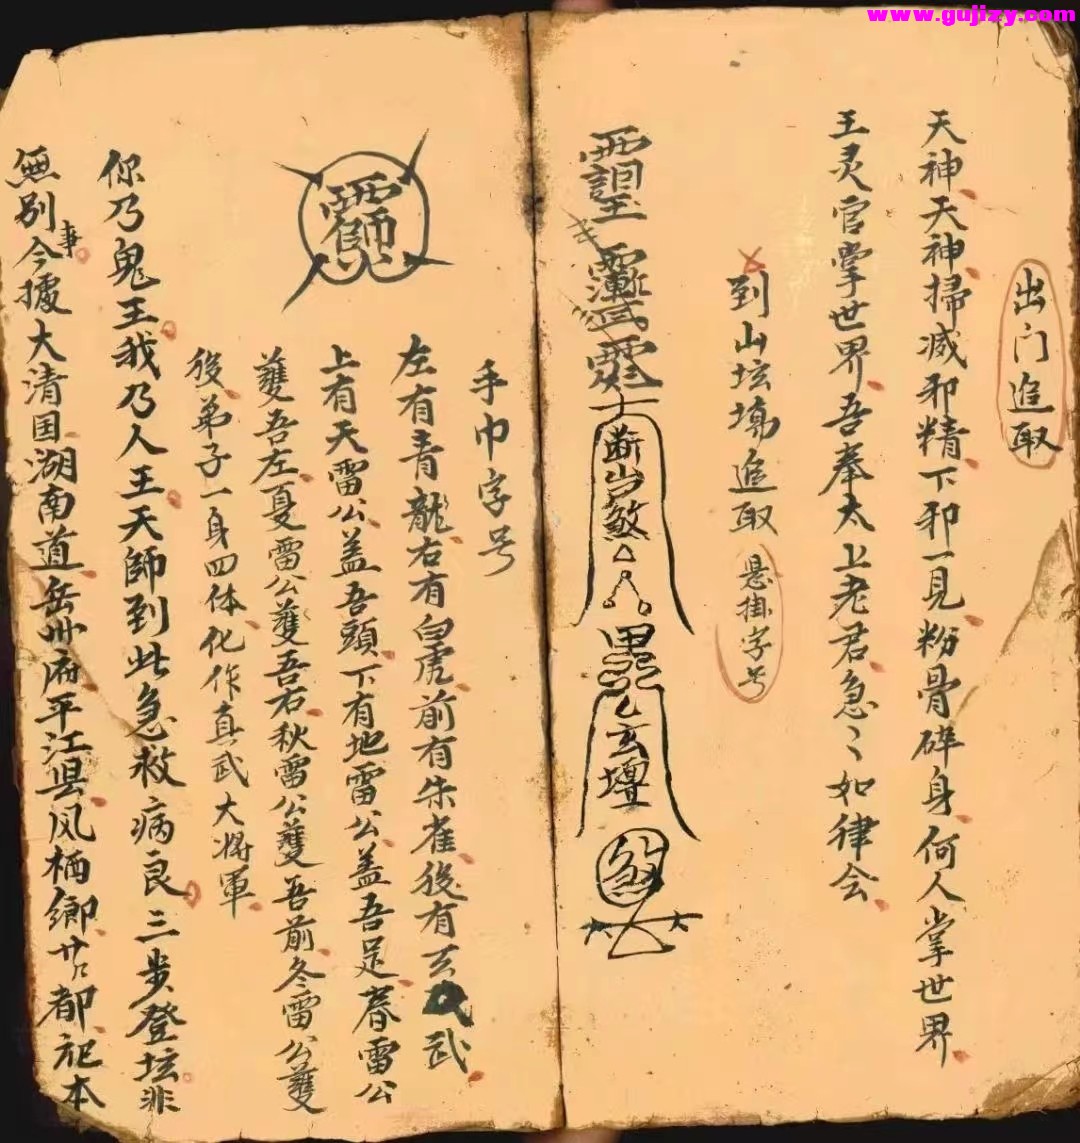 www.gujizy.com
出门追取
天神天神掃滅邪精下邪一見粉骨碎身何人掌世界
王灵官掌世界吾奉太上老君急〻如律令
到山坛場追取 悬掛字号
斷山煞
玄壇
煞
手巾字号
左有青龍右有白虎前有朱雀後有玄武
上有天雷公盖吾頭下有地雷公盖吾足春雷公
護吾左夏雷公護吾右秋雷公護吾前冬雷公護
後弟子一身四体化作真武大将軍
你乃鬼王我乃人王天師到此急救病良三步登坛非
無别事今據大清国湖南道岳州府平江县风栖鄉都祀本